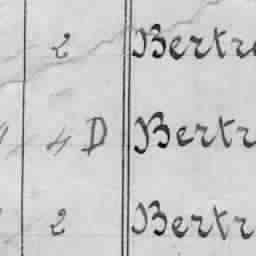 2 Bertr
4 D Bertr
2 Bertr